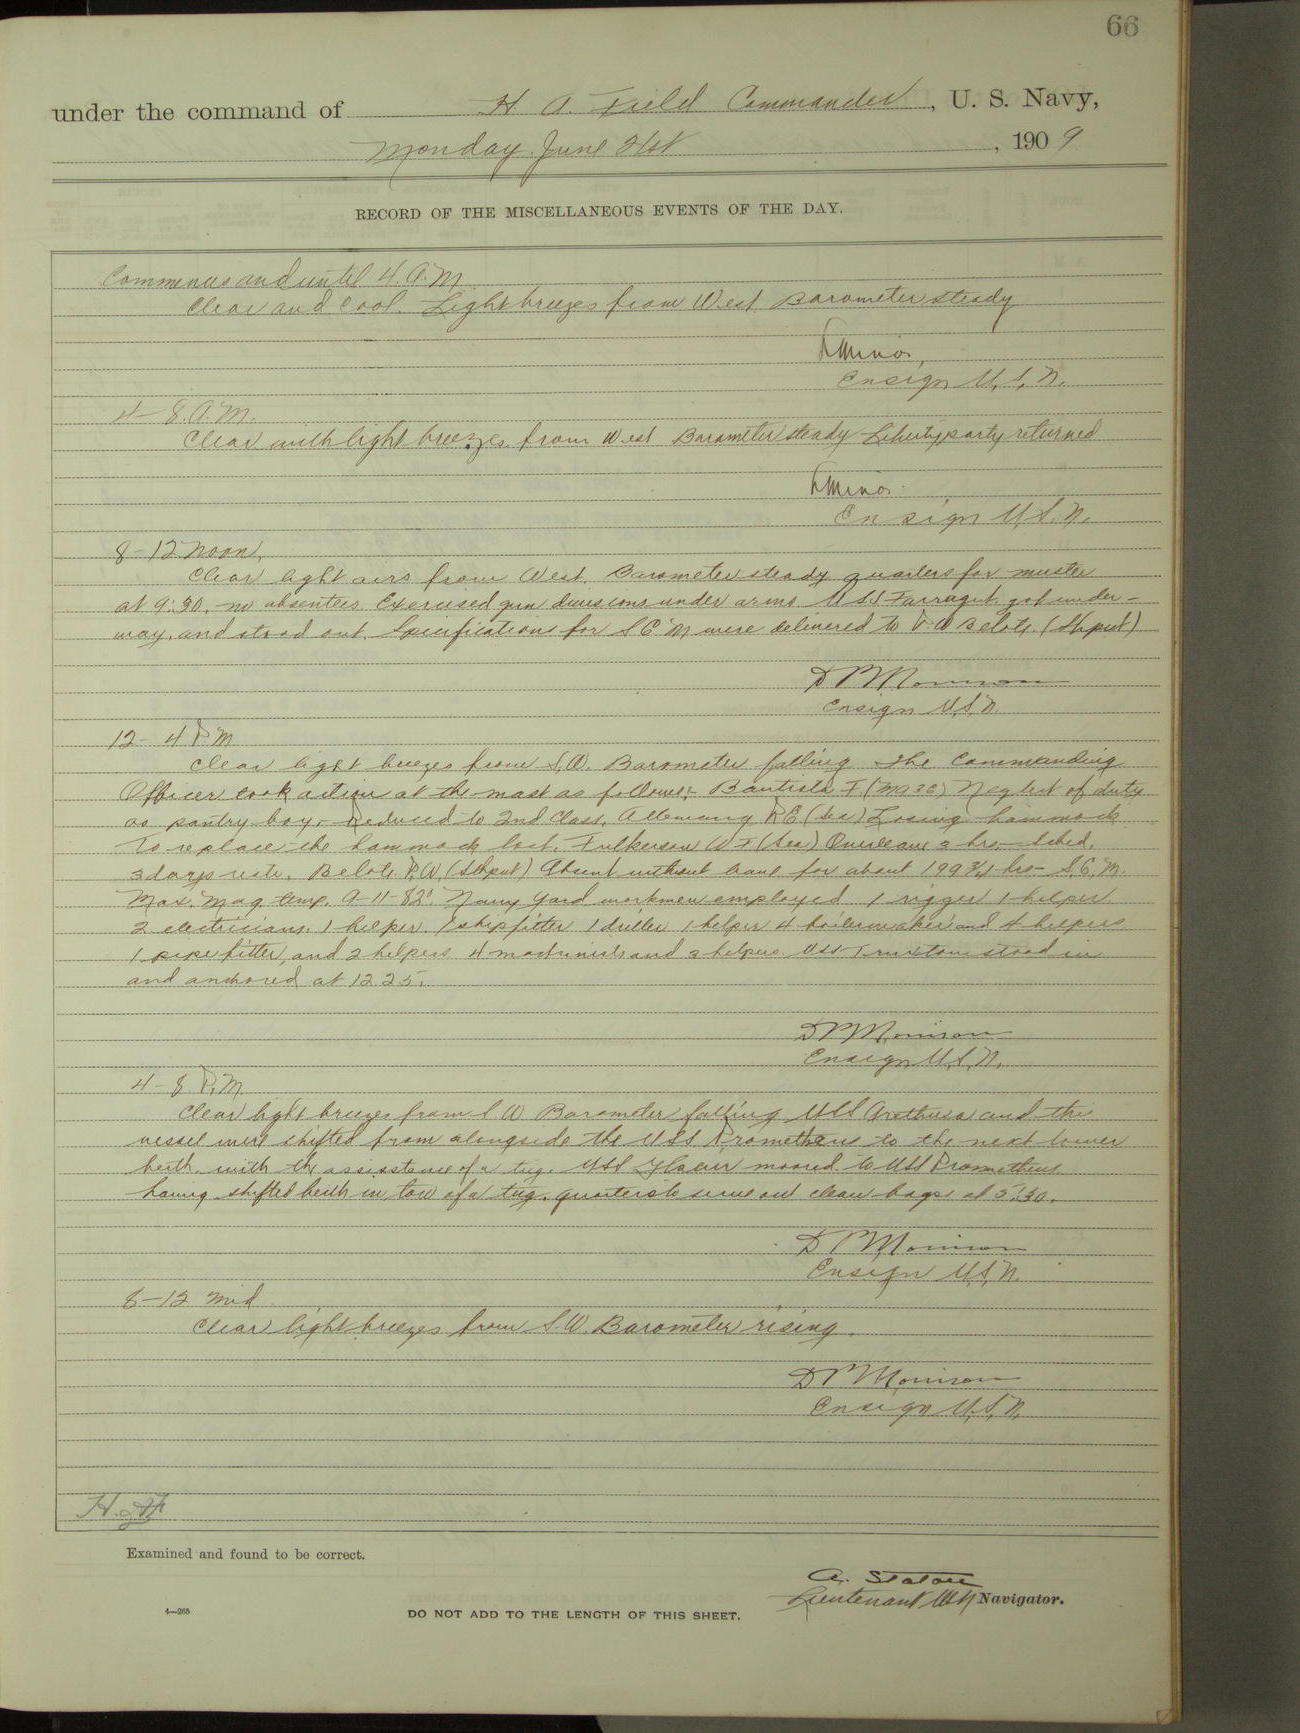 66
under the command of H A. Field Commander, U. S. Navy,
Monday June 21st, 1909
RECORD OF THE MISCELLANEOUS EVENTS OF THE DAY.
Commences and until 4. A.M.
Clear and Cool. Light breezes from West Barometer steady
Ensign U.S.N.
4-8. A.M.
Clear with light breezes from West Barometer steady Liberty party returned
Ensign U.S.N.
8-12 Noon,
Clear light airs from West. Barometer steady quarters for muster
at 9:30. no absentees. Exercised gun divisions under arms. U.S.S Farragut got under-
way, and stood out. Specifications for S C M were delivered to W Belote. (Shput)
D P Morrison
Ensign U.S.N.
12-4 P M
Clear light breezes from S.W. Barometer falling The Commanding
Officer took action at the mast as follows;- Bautista F (Ma 3c) Neglect of duty
as pantry boy,- Reduced to 2nd Class, Allemang R E (Sea) Losing hammock
To replace the hammock lost. Fulkerson W F (Sea) Overleave 3 hrs.
3 days restr. Belote P.W. (Shput) Absent without leave for about 199¾ hrs- S.C.M.
Max. Mag temp. A-11-82° Navy Yard workmen employed 1 rigger 1 helper
2 electricians. 1 helper. 1 shipfitter 1 driller 1 helper 4 boilermakers and 4 helpers
1 pipe fitter, and 2 helpers 4 machinists and 3 helpers. USS Truxton stood in
and anchored at 12 25.
D P Morrison
Ensign U.S.N.
4-8 P.M.
Clear light breezes from S W Barometer falling USS Arethusa and this
vessel were shifted from alongside the USS Prometheus to the next lower
berth. with the assistance of a tug. USS moored to USS Prometheus
having shifted berth in tow of a tug. quarters to serve out clean bags at 5:30.
D P Morrison
Ensign U.S.N.
8-12 Mid
Clear light breezes from S.W. Barometer rising.
D P Morrison
Ensign U.S.N.
Examined and found to be correct.
A. Staton
Lieutenant USN Navigator.
4—265
DO NOT ADD TO THE LENGTH OF THIS SHEET.